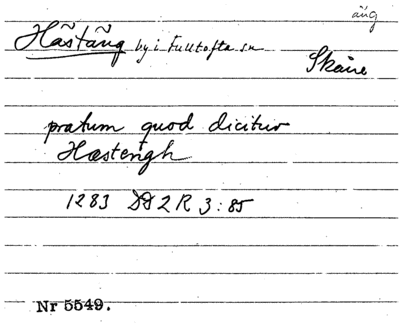 äng
Hästäng by i Fulltofta sn
Skåne
pratum quod dicitur
Hæstengh
1283 DD 2 R 3:85
Nr 5549.